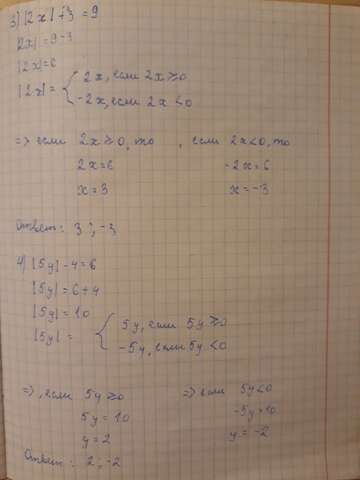 3) |2x|+3=9
|2x|=9-3
|2x|=6
|2x|= { 2x, если 2x≥0
-2x, если 2x<0
=> если 2x≥0, то , если 2x<0, то
2x=6 -2x=6
x=3 x=-3
Ответ: 3 ; -3
4) |5y|-4=6
|5y|=6+4
|5y|=10
|5y|= { 5y, если 5y≥0
-5y, если 5y<0
=>, если 5y≥0 => если 5y<0
5y=10 -5y=10
y=2 y=-2
Ответ: 2 ; -2